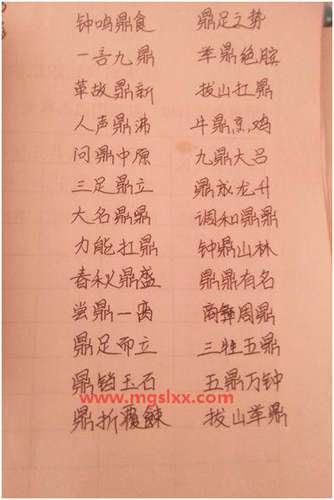 钟鸣鼎食 鼎足之势
一言九鼎 举鼎绝膑
革故鼎新 拔山扛鼎
人声鼎沸 牛鼎烹鸡
问鼎中原 九鼎大吕
三足鼎立 鼎成龙升
大名鼎鼎 调和鼎鼐
力能扛鼎 钟鼎山林
春秋鼎盛 鼎鼎有名
尝鼎一脔 商彝周鼎
鼎足而立 三牲五鼎
鼎铛玉石 五鼎万钟
www.mgslxx.com
鼎折覆餗 拔山举鼎